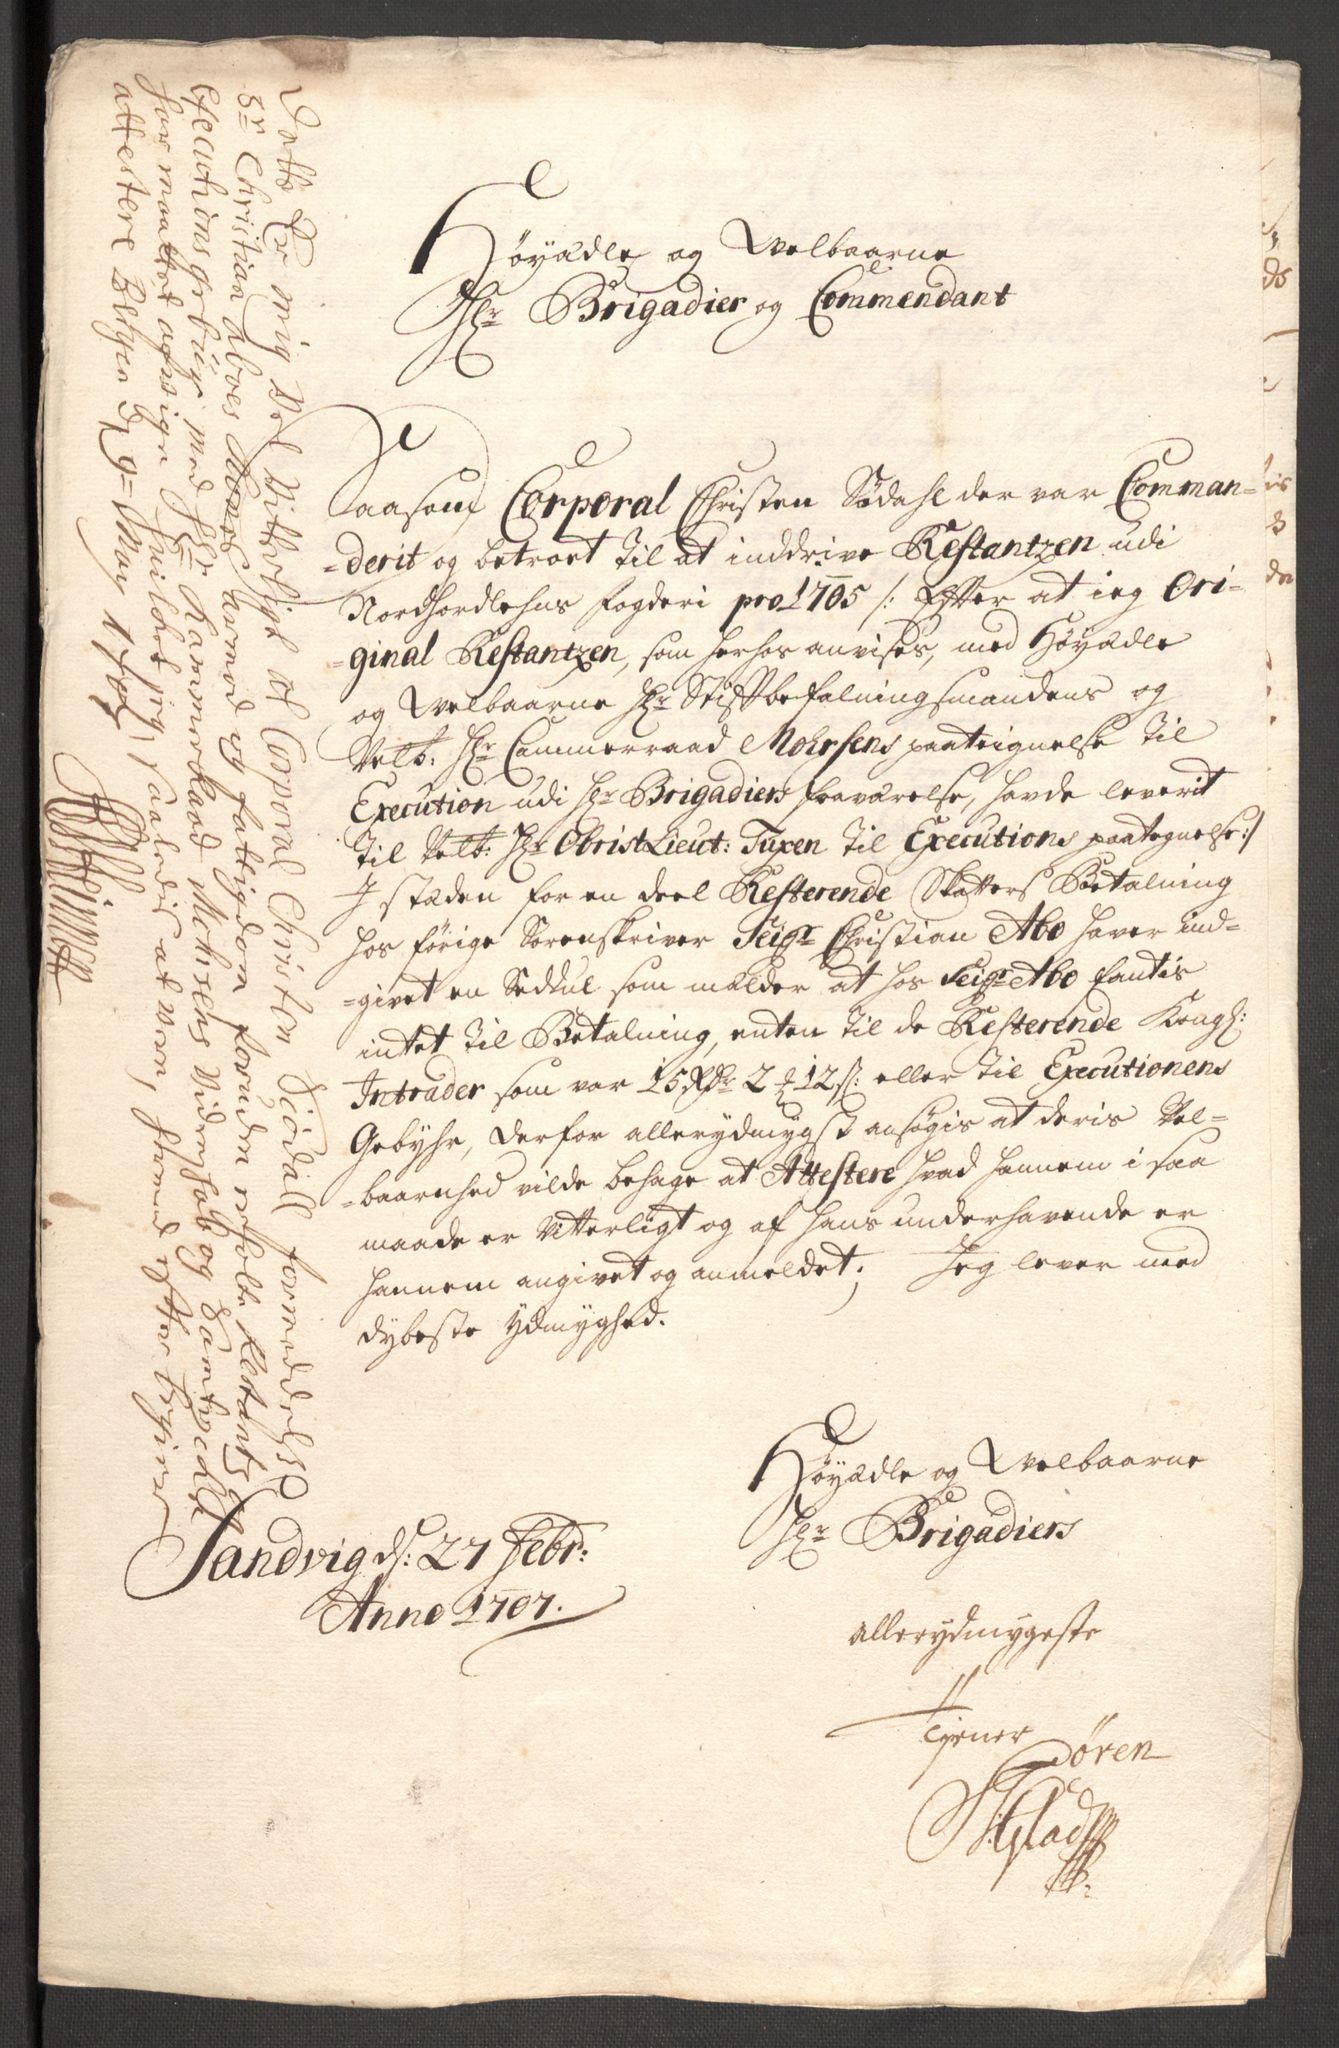 Høyædle og Welbaarne
Hr Brigadier og Commendant
Saasom Corporal Christen Sødahl der var Comman-
-derit og betroet til at inddrive Restantzen udi
Nordhordlehns fogderi pro 1705 /: Efter at ieg Ori-
-ginal Restantzen, som herhos anvises, med Høyædle
og Welbaarne Hr Stiftbefalningsmandens og
Velb: Hr Cammerraad Mohrsens paateignelse til
Execution udi Hr Brigadiers fraværelse, hafde leverit
til Velb: Hr Obrist Lieut: Tuxen til Executions paategnelse :/
I stæden for en deel Resterende Skatters Betalning
hos förige Sorenskriver Seigr Christian Abo hafver ind-
-givet en Seddul som mælder at hos Seigr Abo fantis
intet til Betalning, enten til de Resterende Kongl:
Intrader som var 15 Rdr 2 ₰ 12 s: eller til Executionens
Gebyhr, derfor allerydmygst ansøgis at deris Vel-
-baarnhed vilde behage at Attestere hvad hannem i saa
maade er Vitterligt og af hans underhavende er
hannem angivet og anmeldet; Jeg lever med
dybeste ydmyghed.
Høyædle og Welbaarne
Hr Brigadiers
allerydmygeste
Tjener
Søren
Sandvig ds: 27 Febr:
Anno 1707.
Dette er mig vel vitterligt at Corporal Christen Siödall formedelst
Sr Christian Aboes armod og fattigdom foruden rehele Restantz og
Executions gebür med Hr Kammerraad Videnskab og Samtycke
har maattet afwige hvilket jeg Saaledis at were, herved efter begier
attestere Bergen d 9 = May 1707